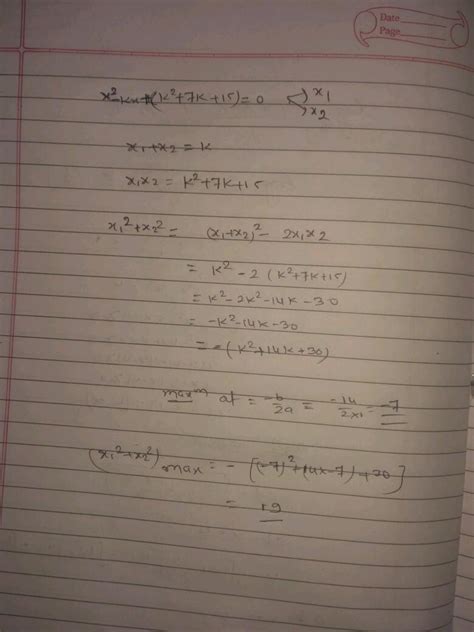 Date
Page
x²-kx+(k²+7k+15)=0 < x₁
x₂
x₁+x₂ = k
x₁x₂ = k²+7k+15
x₁²+x₂² = (x₁+x₂)² - 2x₁x₂
= k² - 2 (k²+7k+15)
= k²-2k²-14k-30
= -k²-14k-30
= -(k²+14k+30)
maxᵐ at = -b/2a = -14/2×1 = -7
(x₁²+x₂²)max = - [(-7)²+(14x-7)+30]
= 19